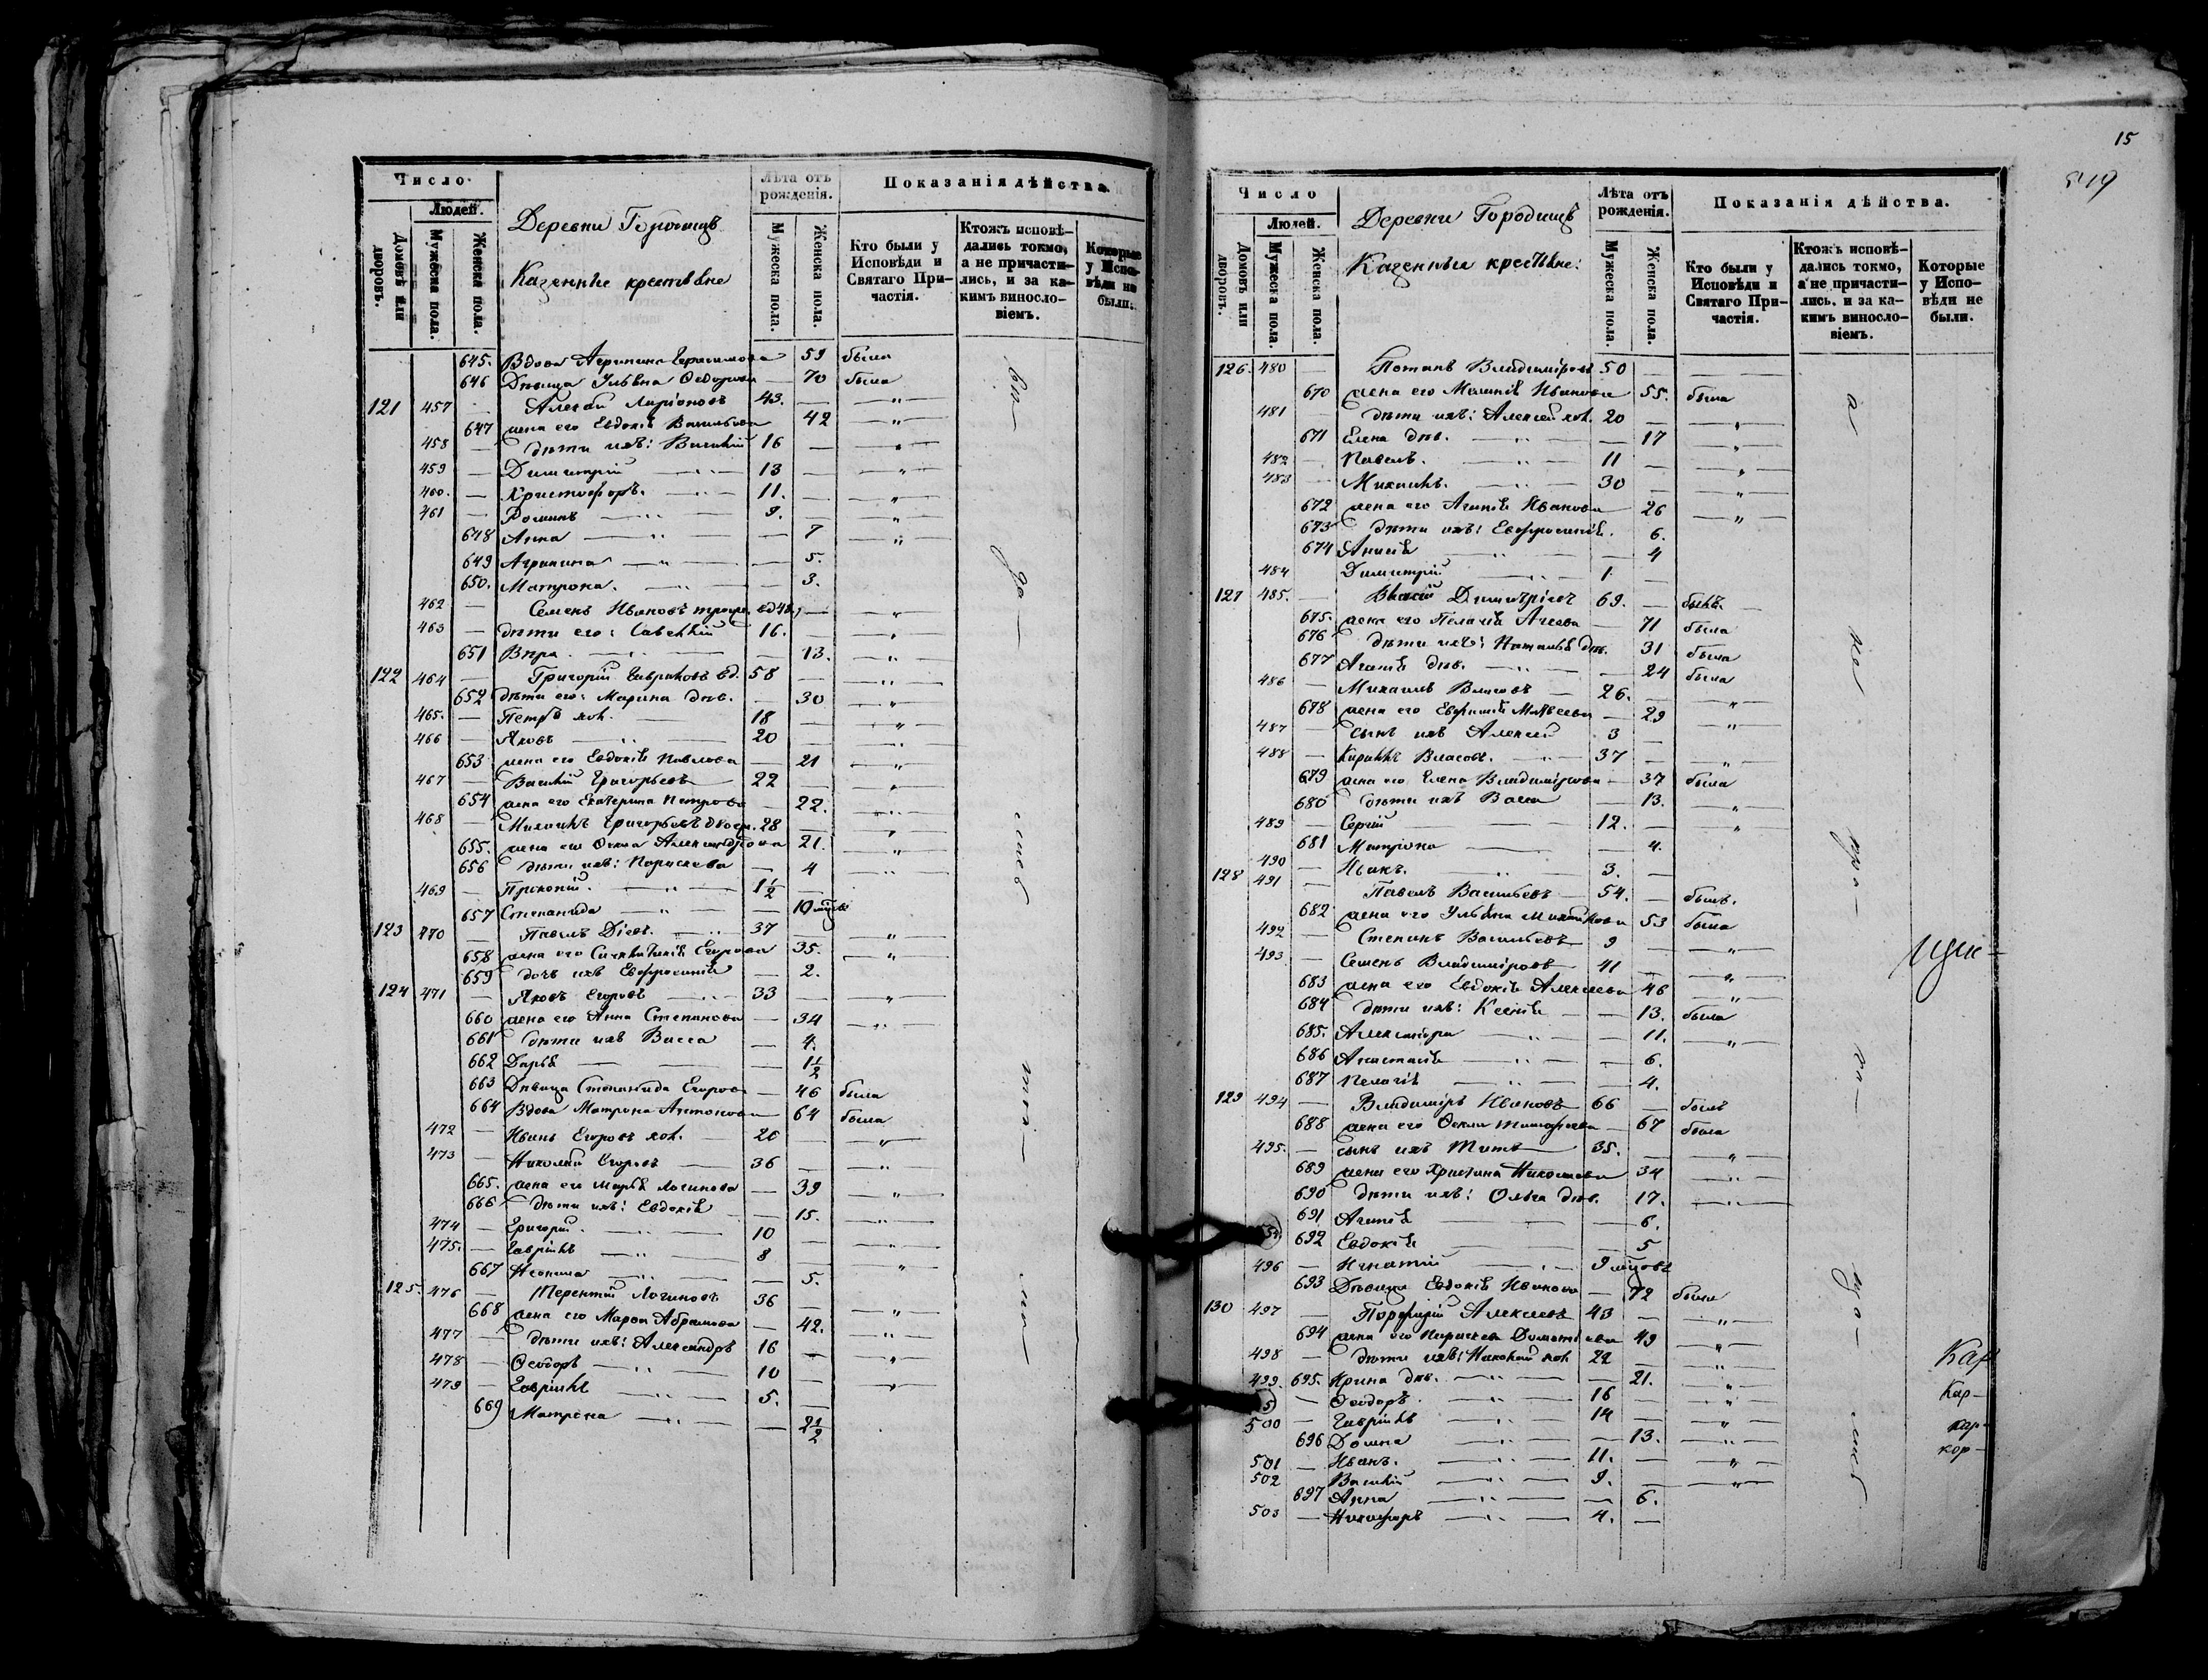 Число
Людей.
Домовъ или дворовъ.
Мужеска пола.
Женска пола.
Деревни Городищъ
Казенные крестьяне
Лѣта отъ рожденія.
Мужеска пола.
Женска пола.
Показанія дѣйства.
Кто были у Исповѣди и Святаго Причастія.
Ктожъ исповѣдались токмо, а не причастились, и за какимъ винословіемъ.
Которые у Исповѣди не были.
645. Вдова Агрипина Герасимова 59 была
646 Дѣвица Ульяна Ѳедорова — 70 была
121 457 Алексѣй Ларіоновъ 43. — „ —
647 жена его Евдокія Васильева 42 — „ —
458 — дѣти ихъ: Василій 16 — — „ —
459 — Димитрій — „ — 13 — — „ —
460. — Христофоръ. — „ — 11. — — „ —
461 — Романъ — „ — 9. — — „ —
648 Анна — „ — — 7 — „ —
649 Агрипина — „ — — 5.
650. Матрона. — „ — — 3.
462 — Семенъ Ивановъ вд 48, — — „ —
463 — дѣти его: Савелій 16. — — „ —
651 Вѣра. — „ — — 13. — „ —
122 464 — Григорій Гавриловъ вд. 58 — — „ —
652 дѣти его: Марина дѣв. — 30 — „ —
465. — Петръ хол. — 18 — — „ —
466 — Яковъ — „ — 20 — — „ —
653 жена его Евдокія Павлова — 21 — „ —
467 — Василій Григорьевъ — 22 — — „ —
654 жена его Екатерина Петрова — 22. — „ —
468 — Михаилъ Григорьевъ 28 — — „ —
655. жена его Ѳекла Александрова 21. — „ —
656 дѣти ихъ: Параскева — 4 — „ —
469 — Прокопій. — „ — 1½ —
657 Степанида — „ — — 10 мѣсяц
123 470 — Павелъ Діевъ. — „ — 37 — — „ —
658 жена его Синклитикія Егорова 35. — „ —
659 дочь ихъ Евфросинія — 2.
124 471 — Яковъ Егоровъ — „ — 33 — — „ —
660 жена его Анна Степанова — 34 — „ —
661 дѣти ихъ Васса — 4.
662 Дарья — — 1½
663 Дѣвица Степанида Егорова — 46 была
664 Вдова Матрона Антонова — 64 была
472 — Иванъ Егоровъ хол. — 26 — — „ —
473 — Николай Егоровъ — 36 — — „ —
665. жена его Марья Логинова — 39 — „ —
666 дѣти ихъ: Евдокія — 15. — „ —
474 — Григорій. — „ — 10 — — „ —
475. — Гавріилъ — „ — 8 — — „ —
667 Неонила — „ — — 5.
125. 476 — Терентій Логиновъ 36 — — „ —
668 жена его Марѳа Абрамова — 42. — „ —
477 — дѣти ихъ: Александръ 16 — — „ —
478 — Ѳеодоръ — „ — 10 — — „ —
479 — Гавріилъ — „ — 5. —
669 Матрона — „ — — 2½
15
Число
Людей.
Домовъ или дворовъ.
Мужеска пола.
Женска пола.
Деревни Городищъ
Казенные крестьяне.
Лѣта отъ рожденія.
Мужеска пола.
Женска пола.
Показанія дѣйства.
Кто были у Исповѣди и Святаго Причастія.
Ктожъ исповѣдались токмо, а не причастились, и за какимъ винословіемъ.
Которые у Исповѣди не были.
126. 480 — Потапъ Владиміровъ 50 — —
670 жена его Меланія Иванова 55. была
481 — дѣти ихъ: Алексей хол. 20 — — „ —
671 Елена дѣв. — „ — — 17 — „ —
482 — Павелъ. — „ — 11 — — „ —
483 — Михаилъ. — „ — 30 — — „ —
672 жена его Агапія Иванова — 26 — „ —
673 дѣти ихъ: Евфросинія. 6.
674 Анисія „ — 4
484 Димитрій — „ — 1. —
127 485. — Власій Димитріевъ 69. — былъ.
675. жена его Пелагія Агеева — 71 была
676 дѣти ихъ: Наталья дѣв. 31 была
677 Агапія дѣв. — „ — — 24 была
486 — Михаилъ Власовъ — 26. — — „ —
678 жена его Евфимія Матвеева — 29 — „ —
487 — сынъ ихъ Алексей 3 —
488 — Кирилъ Власовъ. — 37 — — „ —
679 жена его Елена Владимірова — 37 была
680 дѣти ихъ Васса — 13. — „ —
489 — Сергій — 12. — — „ —
681 Матрона — — 4.
490 — Иванъ. — „ — 3. —
128 491 — Павелъ Васильевъ — 54. — былъ.
682 жена его Ульяна Михайлова 53 была
492 — Степанъ Васильевъ 9 — — „ —
493 — Семенъ Владиміровъ 41 — — „ —
683 жена его Евдокія Алексеева 46 — „ —
684 дѣти ихъ: Ксенія — — 13. была
685. Александра — „ — — 11. — „ —
686 Анастасія — „ — — 6.
687 Пелагія — „ — — 4.
129 494 — Владиміръ Ивановъ 66 — былъ
688 жена его Ѳекла Тимофеева — 67 была
495. — сынъ ихъ Титъ — 35. — — „ —
689 жена его Христина Николаева 34 — „ —
690 дѣти ихъ: Ольга дѣв. 17. — „ —
691 Агапія — — 6.
692 Евдокія — — 5
496 — Игнатій — „ — 9 мѣсяц
693 Дѣвица Евдокія Иванова — 72 была
130 497 — Порфирій Алексеевъ 43 — — „ —
694 жена его Параскева 49 — „ —
498 — дѣти ихъ: Николай хол 22 — — „ —
499. 695. Ирина дѣв. — „ — — 21. — „ —
— Ѳеодоръ. — „ — 16 — — „ —
500 — Гавріилъ — „ — 14 — — „ —
696 Домна — „ — — 13. — „ —
501 — Иванъ. — „ — 11. — — „ —
502 Василій — „ — 9. — — „ —
697 Анна — „ — — 6.
503 — Никифоръ — „ — 4. —
Кар
Кар-
кар-
кор-